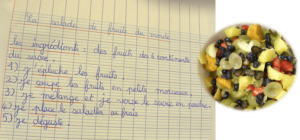 La salade de fruits du monde
Les ingrédients : des fruits des 5 continents
du sucre.
1) j'épluche les fruits
2) je coupe les fruits en petits morceaux,
3) je mélange et je verse le sucre en poudre.
4) je place le saladier au frais
5) je déguste !